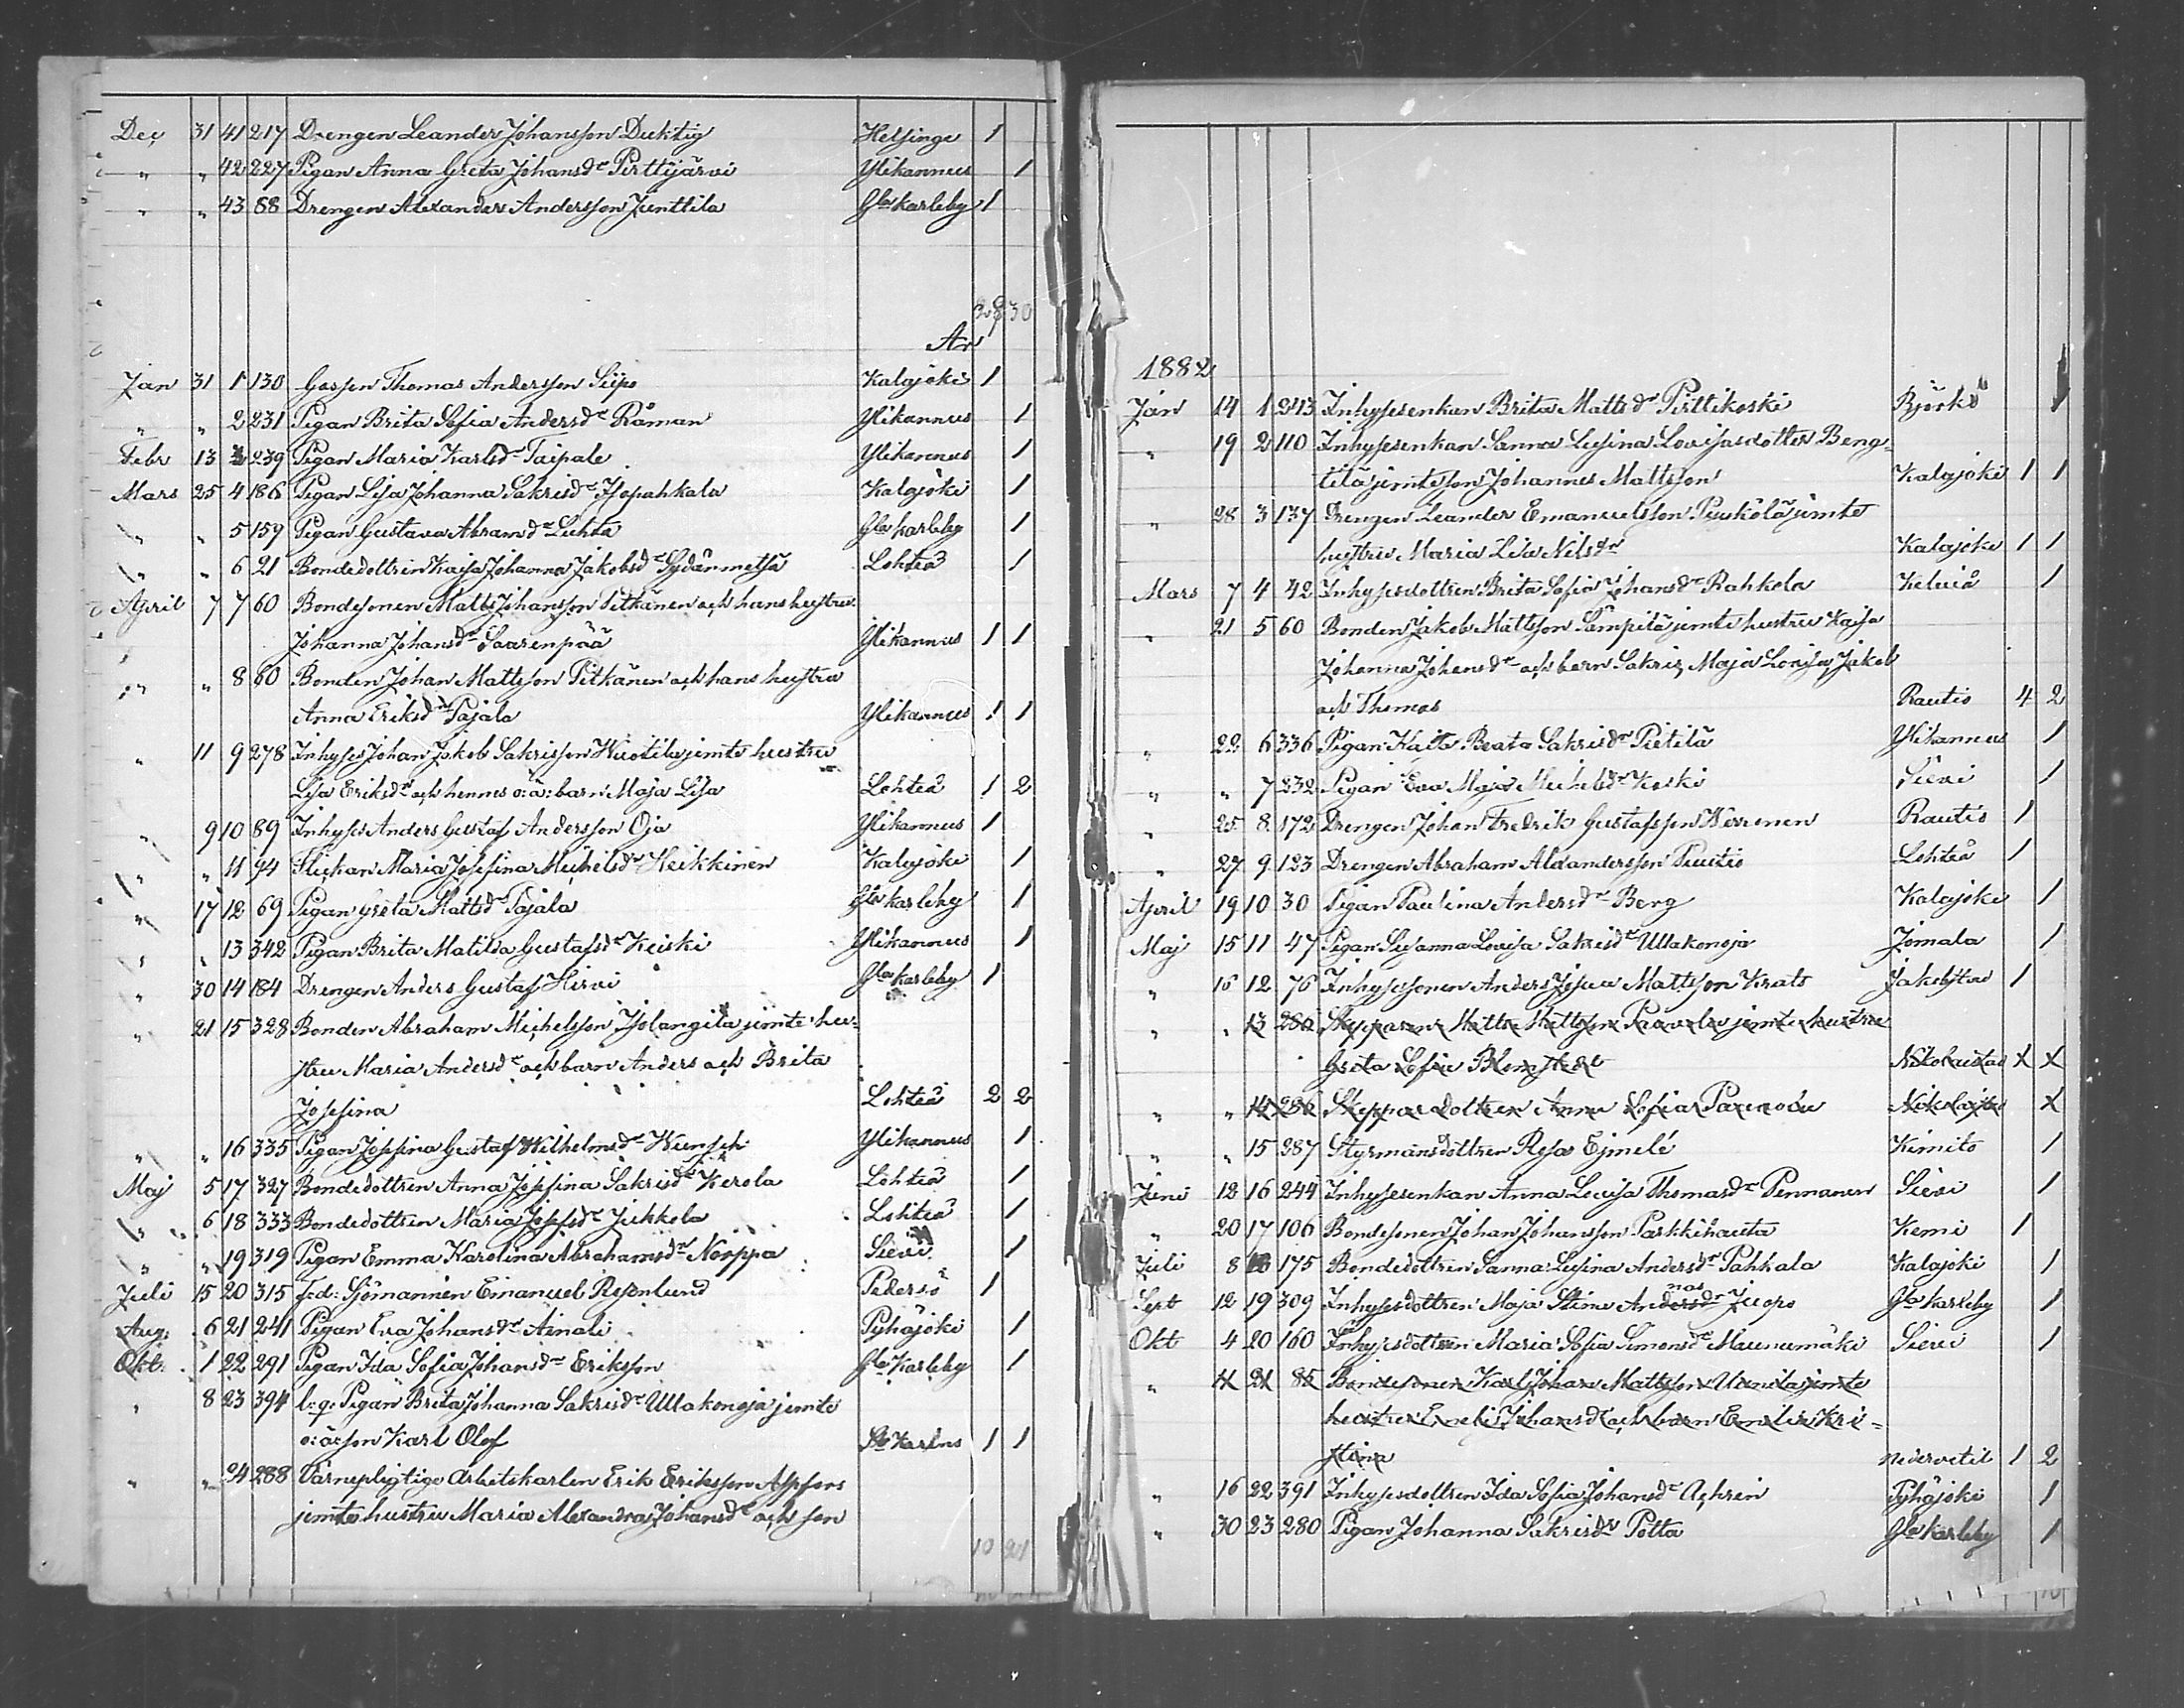 Dec 31 41 217 Drengen Leander Johansson Duktig Helsinge 1
" " 42 227 Pigan Anna Greta Johansdr Pirttijärvi Ylikannus 1
" " 43 88 Drengen Alexander Andersson Junttila Gla Karleby 1
30
År
Jan 31 1 130 Gossen Thomas Andersson Siipo Kalajoki 1
" " 2 231 Pigan Brita Sofia Andersdr Råman Ylikannus 1
Febr 13 3 239 Pigan Maria Karlsdr Taipale Ylikannus 1
Mars 25 4 186 Pigan Lisa Johanna Sakrisdr Isopahkala Kalajoki 1
" " 5 159 Pigan Gustava Abramdr Luhta Gla Karleby 1
" " 6 21 Bondedottren Kaisa Johanna Jakobsdr Sydänmetsä Lohteå 1
April 7 7 60 Bondesonen Matts Johansson Pitkänen och hans hustru
Johanna Johansdr Saarenpää Ylikannus 1 1
" " 8 60 Bonden Johan Mattsson Pitkänen och hans hustru
Anna Eriksdr Pajala Ylikannus 1 1
" 11 9 278 Inhyses Johan Jakob Sakrisson Huotila jemte hustru
Lisa Eriksdr och hennes o: ä: barn Maja Lisa Lohteå 1 2
" 9 10 89 Inhyses Anders Gustaf Andersson Oja Ylikannus 1
" " 11 94 Flickan Maria Josefina Michelsdr Heikkinen Kalajoki 1
" 17 12 69 Pigan Greta Mattsdr Pajala Gla Karleby 1
" " 13 342 Pigan Brita Matilda Gustafsdr Keiski Ylikannus 1
" 30 14 184 Drengen Anders Gustaf Hirvi Gla Karleby 1
" 21 15 328 Bonden Abraham Michelsson Isolangila jemte hu-
stru Maria Andersdr och barn Anders och Brita
Josefina Lohteå 2 2
" " 16 335 Pigan Josefina Gustaf Wilhelmsdr Ylikannus 1
Maj 5 17 327 Bondedottren Anna Josefina Sakrisdr Kerola Lohteå 1
" 6 18 333 Bondedottren Maria Josefsdr Jukkola Lohteå 1
" " 19 319 Pigan Emma Karolina Abrahamsdr Norppa Sievi 1
Juli 15 20 315 f.d: Sjömannen Emanuel Rosenlund Pedersö 1
Aug: 6 21 241 Pigan Eva Johansdr Ainali Pyhäjoki 1
Okt. 1 22 291 Pigan Ida Sofia Johansdr Eriksson Gla Karleby 1
" 8 23 394 l: q: Pigan Brita Johanna Sakrisdr Ullakonoja jemte
o: ä: son Karl Olof St Karins 1 1
" " 24 288 Värnepligtige Arbetskarlen Erik Eriksson Aspfors
jemte hustru Maria Alexandra Johansdr och son
1882
Jan 14 1 243 Inhysesenkan Brita Mattsdr Pirttikoski Björkö 1
" 19 2 110 Inhysesenkan Sanna Lusina Lovisasdotter Beng-
tilä jemte son Johannes Mattsson Kalajoki 1 1
" 28 3 137 Drengen Leander Emanuelsson Puskölä jemte
hustru Maria Lisa Nilsdr Kalajoki 1 1
Mars 7 4 42 Inhysesdottren Brita Sofia Johansdr Rahkola Kelviå 1
" 21 5 60 Bonden Jakob Mattsson Sämpilä jemte hustru Kaisa
Johanna Johansdr och barn Sakris, Maja Lovisa, Jakob
och Thomas Rautio 4 2
" 22 6 336 Pigan Kaisa Beata Sakrisdr Pietilä Ylikannus 1
" " 7 232 Pigan Eva Maja Michelsdr Koski Sievi 1
" 25 8 172 Drengen Johan Fredrik Gustafsson Wirronen Rautio 1
" 27 9 123 Drengen Abraham Alexandersson Puutio Lohteå 1
April 19 10 30 Pigan Paulina Andersdr Berg Kalajoki 1
Maj 15 11 47 Pigan Susanna Lovisa Sakrisdr Ullakonoja Jomala 1
" 16 12 76 Inhysessonen Anders Josua Mattsson Krats Jakobstad 1
" " 13 286 Skepparen Matts Mattsson Paavola jemte hustru
Greta Sofia Blomstedt Nikolaistad X X
" " 14 286 Skeppardottren Anna Sofia Paavola X
" " 15 287 Styrmansdottren Rosa Ejmelé Kimito 1
Juni 12 16 244 Inhysesenkan Anna Lovisa Thomasdr Pennanen Sievi 1
" 20 17 106 Bondesonen Johan Johansson Parkkihauta Kemi 1
Juli 8 18 175 Bondedottren Sanna Lusina Andersdr Pahkala Kalajoki 1
Sept 12 19 309 Inhysesdottren Maja Stina Andersdr Juopo Gla Karleby 1
Okt 4 20 160 Inhysesdottren Maria Sofia Simonsdr Maunumäki Sievi 1
" 11 21 85 Bondesonen Karl Johan Mattsson Uunila jemte
hustru Johansdr och barn Emelie Kri-
stina Nedervetil 1 2
" 16 22 391 Inhysesdottren Ida Sofia Johansdr Achrén Pyhäjoki 1
" 30 23 280 Pigan Johanna Sakrisdr Potta Gla Karleby 1